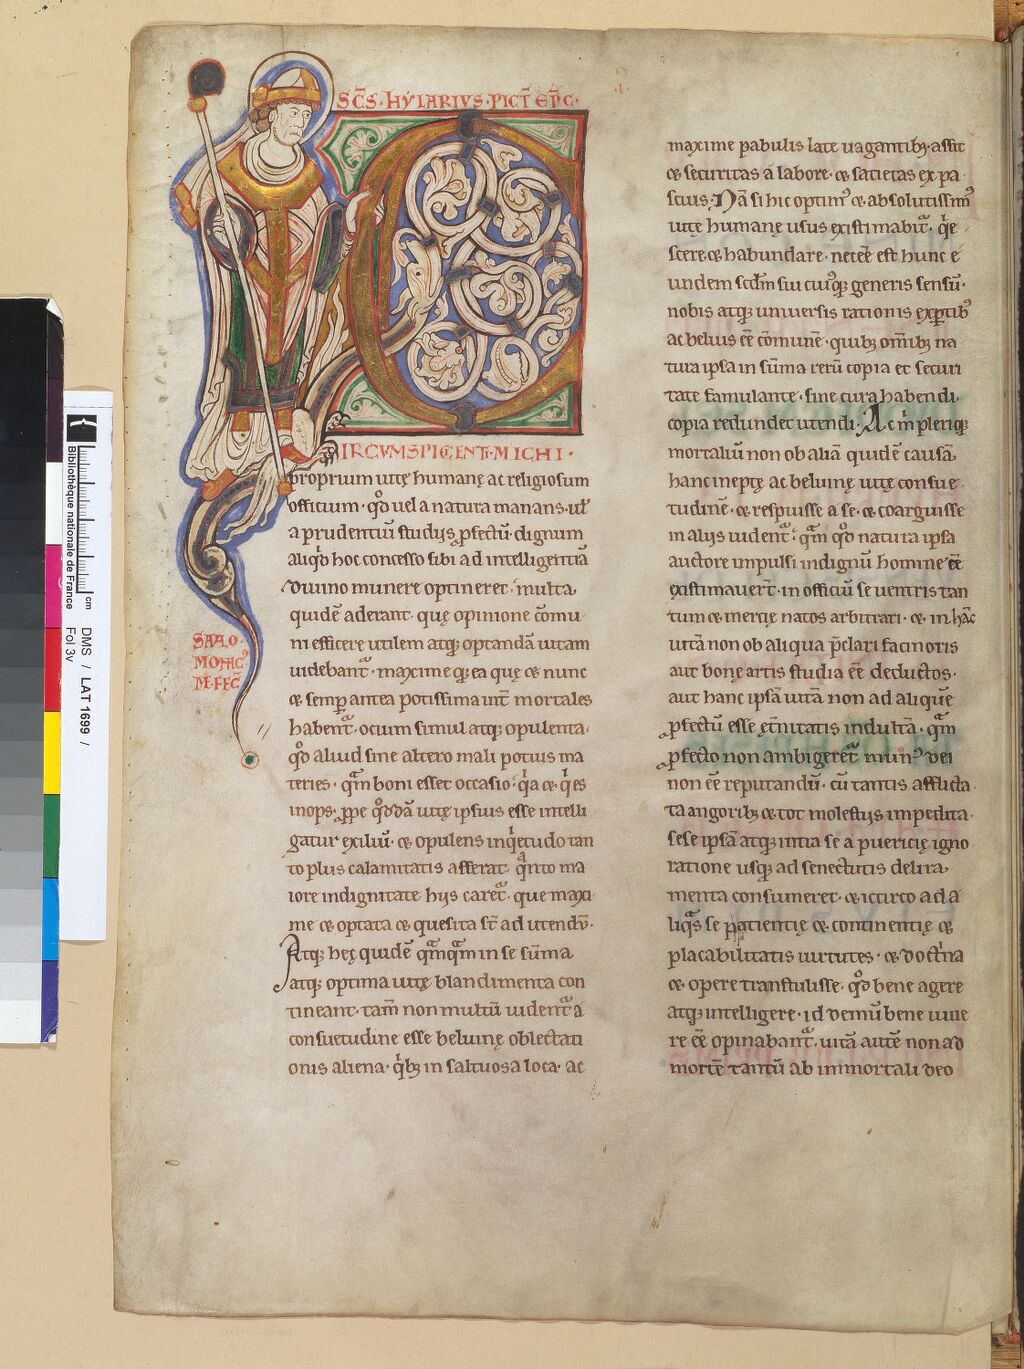 SC̄S · HYLARIVS · PICT̄ EP̄C ·
CIRCVMSPICIENTI · MICHI ·
proprium uitę humanę ac religiosum
officium · qđ uel a natura manans · ul̄
a prudentum̄ studijs ꝓfectū · dignum
aliqͥd hoc concesso sibi ad intelligentiā
diuino munere optineret · multa
quidē aderant · quę opinione cōmu
ni efficere utilem atqꝫ optandā uitam
uidebant᷑ · maxime qꝫ ea quę & nunc
& semp antea potissima int̄ mortales
habent᷑ · ocium simul atqꝫ opulenta ·
qđ aliud sine altero mali potius ma
teries · qͣm boni esset occasio · qͥa & qͥes
inops · ꝓpe qđdā uitę ipsius esse intelli
gatur exiliū · & opulens inqͥetudo tan
to plus calamitatis afferat · qͣnto ma
iore indignitate hijs caret᷑ · que maxi
me & optata & quesita st̄ ad utendū ·
Atqꝫ hęc quidē qͣmqͣm in se sūma
atqꝫ optima uitę blandimenta con
tineant · tam̄ non multū uident᷑ a
consuetudine esse beluinę oblectati
onis aliena · qͥbꝫ in saltuosa loca · ac
SALO
MONIC᷒
M̄ FEC̄
maxime pabulis late uagantibꝫ · assit
& securitas a labore · & satietas ex pa
scuis · Nā si hic optim᷒ & absolutissim᷒
uitę humanę usus existimabit᷑ · qͥe
scere · & habundare · necēe est hunc e
undem scđm sui cuiꝰqꝫ generis sensū ·
nobis atqꝫ uniuersis rationis exꝑtibꝰ
ac beluis ēe cōmunē · quibꝫ om̄ibꝫ na
tura ipsa in sūma rerū copia et securi
tate famulante · sine cura habendi ·
copia redundet utendi · Ac m̄ pleriqꝫ
mortaliū non ob aliā quidē causā
hanc ineptę ac beluinę uitę consue
tudinē · & respuisse a se · & coarguisse
in alijs uident᷑ · qͣm qđ natura ipsa
auctore impulsi indignū homine ēe
existimauer̄t · in officiū se uentris tan
tum & inertię natos arbitrari · & in hāc
uitā non ob aliqua p̄clari facinoris
aut bonę artis studia ēe deductos ·
aut hanc ipsā uitā non ad aliquē
ꝓfectū esse ęt̄nitatis indultā · qͣm
ꝓfecto non ambigeret᷑ munꝰ dei
non ēe reputandū · cū tantis afflicta
ta angoribꝫ & tot molestijs impedita ·
sese ipsā atqꝫ intra se a puericię igno
ratione usqꝫ ad senectutis delira
menta consumeret · & iccirco ad a
liqͣs se patientię & continentię &
placabilitatis uirtutes · & doctͥna
& opere transtulisse · qđ bene agere
atqꝫ intelligere · id demū bene uiue
re ēe opinabant᷑ · uitā autē non ad
mortē tantū ab immortali deo
Bibliothèque nationale de France
cm
DMS / LAT 1699 /
Fol 3v